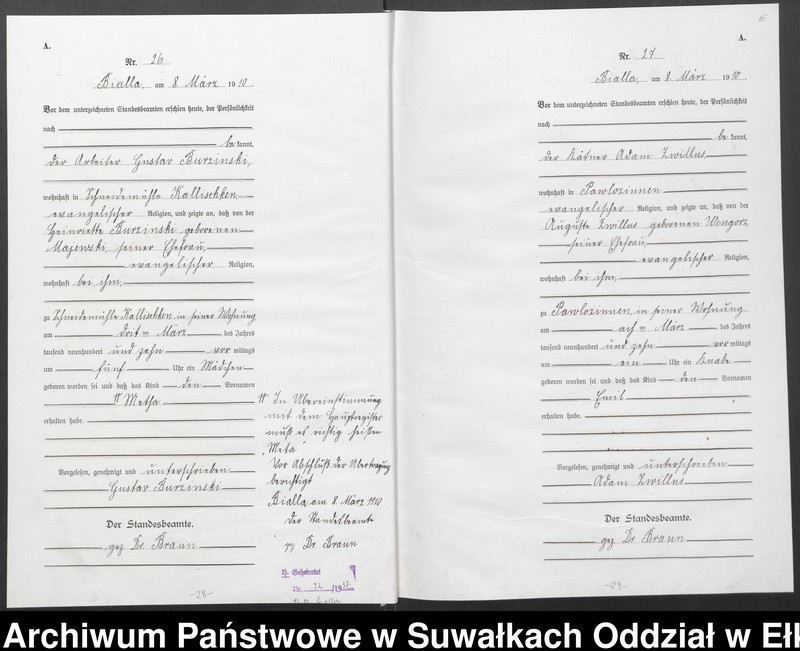 A.
Nr. 26
Bialla, am 8 März 1910.
Vor dem unterzeichneten Standesbeamten erschien heute, der Persönlichkeit
nach
be kannt,
der Arbeiter Gustav Burzinski,
wohnhaft in Schneidemühle Kallischken,
evangelischer Religion, und zeigte an, daß von der
Heinriette Burzinski geborenen
Majewski, seiner Ehefrau,
evangelischer Religion,
wohnhaft bei ihm,
zu Schneidemühle Kallischken in seiner Wohnung
am drit ten März des Jahres
tausend neunhundert und zehn vor mittags
um fünf Uhr ein Mädchen
geboren worden sei und daß das Kind den Vornamen
Metha
erhalten habe.
Vorgelesen, genehmigt und unterschrieben
Gustav Burzinski
Der Standesbeamte.
gez Dr. Braun
In Übereinstimmung
mit dem Hauptregister
muß es richtig heißen
„Meta“
Vor Abschluß der Übertragung
berichtigt
Bialla am 8 März 1910
der Standesbeamte
gz Dr. Braun
Nr. 32 /19
-28-
A.
Nr. 27
Bialla, am 8 März 1910.
Vor dem unterzeichneten Standesbeamten erschien heute, der Persönlichkeit
nach
be kannt,
der Kätner Adam Zwillus
wohnhaft in Pawlozinnen
evangelischer Religion, und zeigte an, daß von der
Auguste Zwillus geborenen Wengorz
seiner Ehefrau,
evangelischer Religion,
wohnhaft bei ihm,
zu Pawlozinnen, in seiner Wohnung
am ach ten März des Jahres
tausend neunhundert und zehn vor mittags
um ein Uhr ein Knabe
geboren worden sei und daß das Kind den Vornamen
Emil
erhalten habe.
Vorgelesen, genehmigt und unterschrieben
Adam Zwillus
Der Standesbeamte.
gez Dr. Braun
-29-
Archiwum Państwowe w Suwałkach Oddział w Ełk